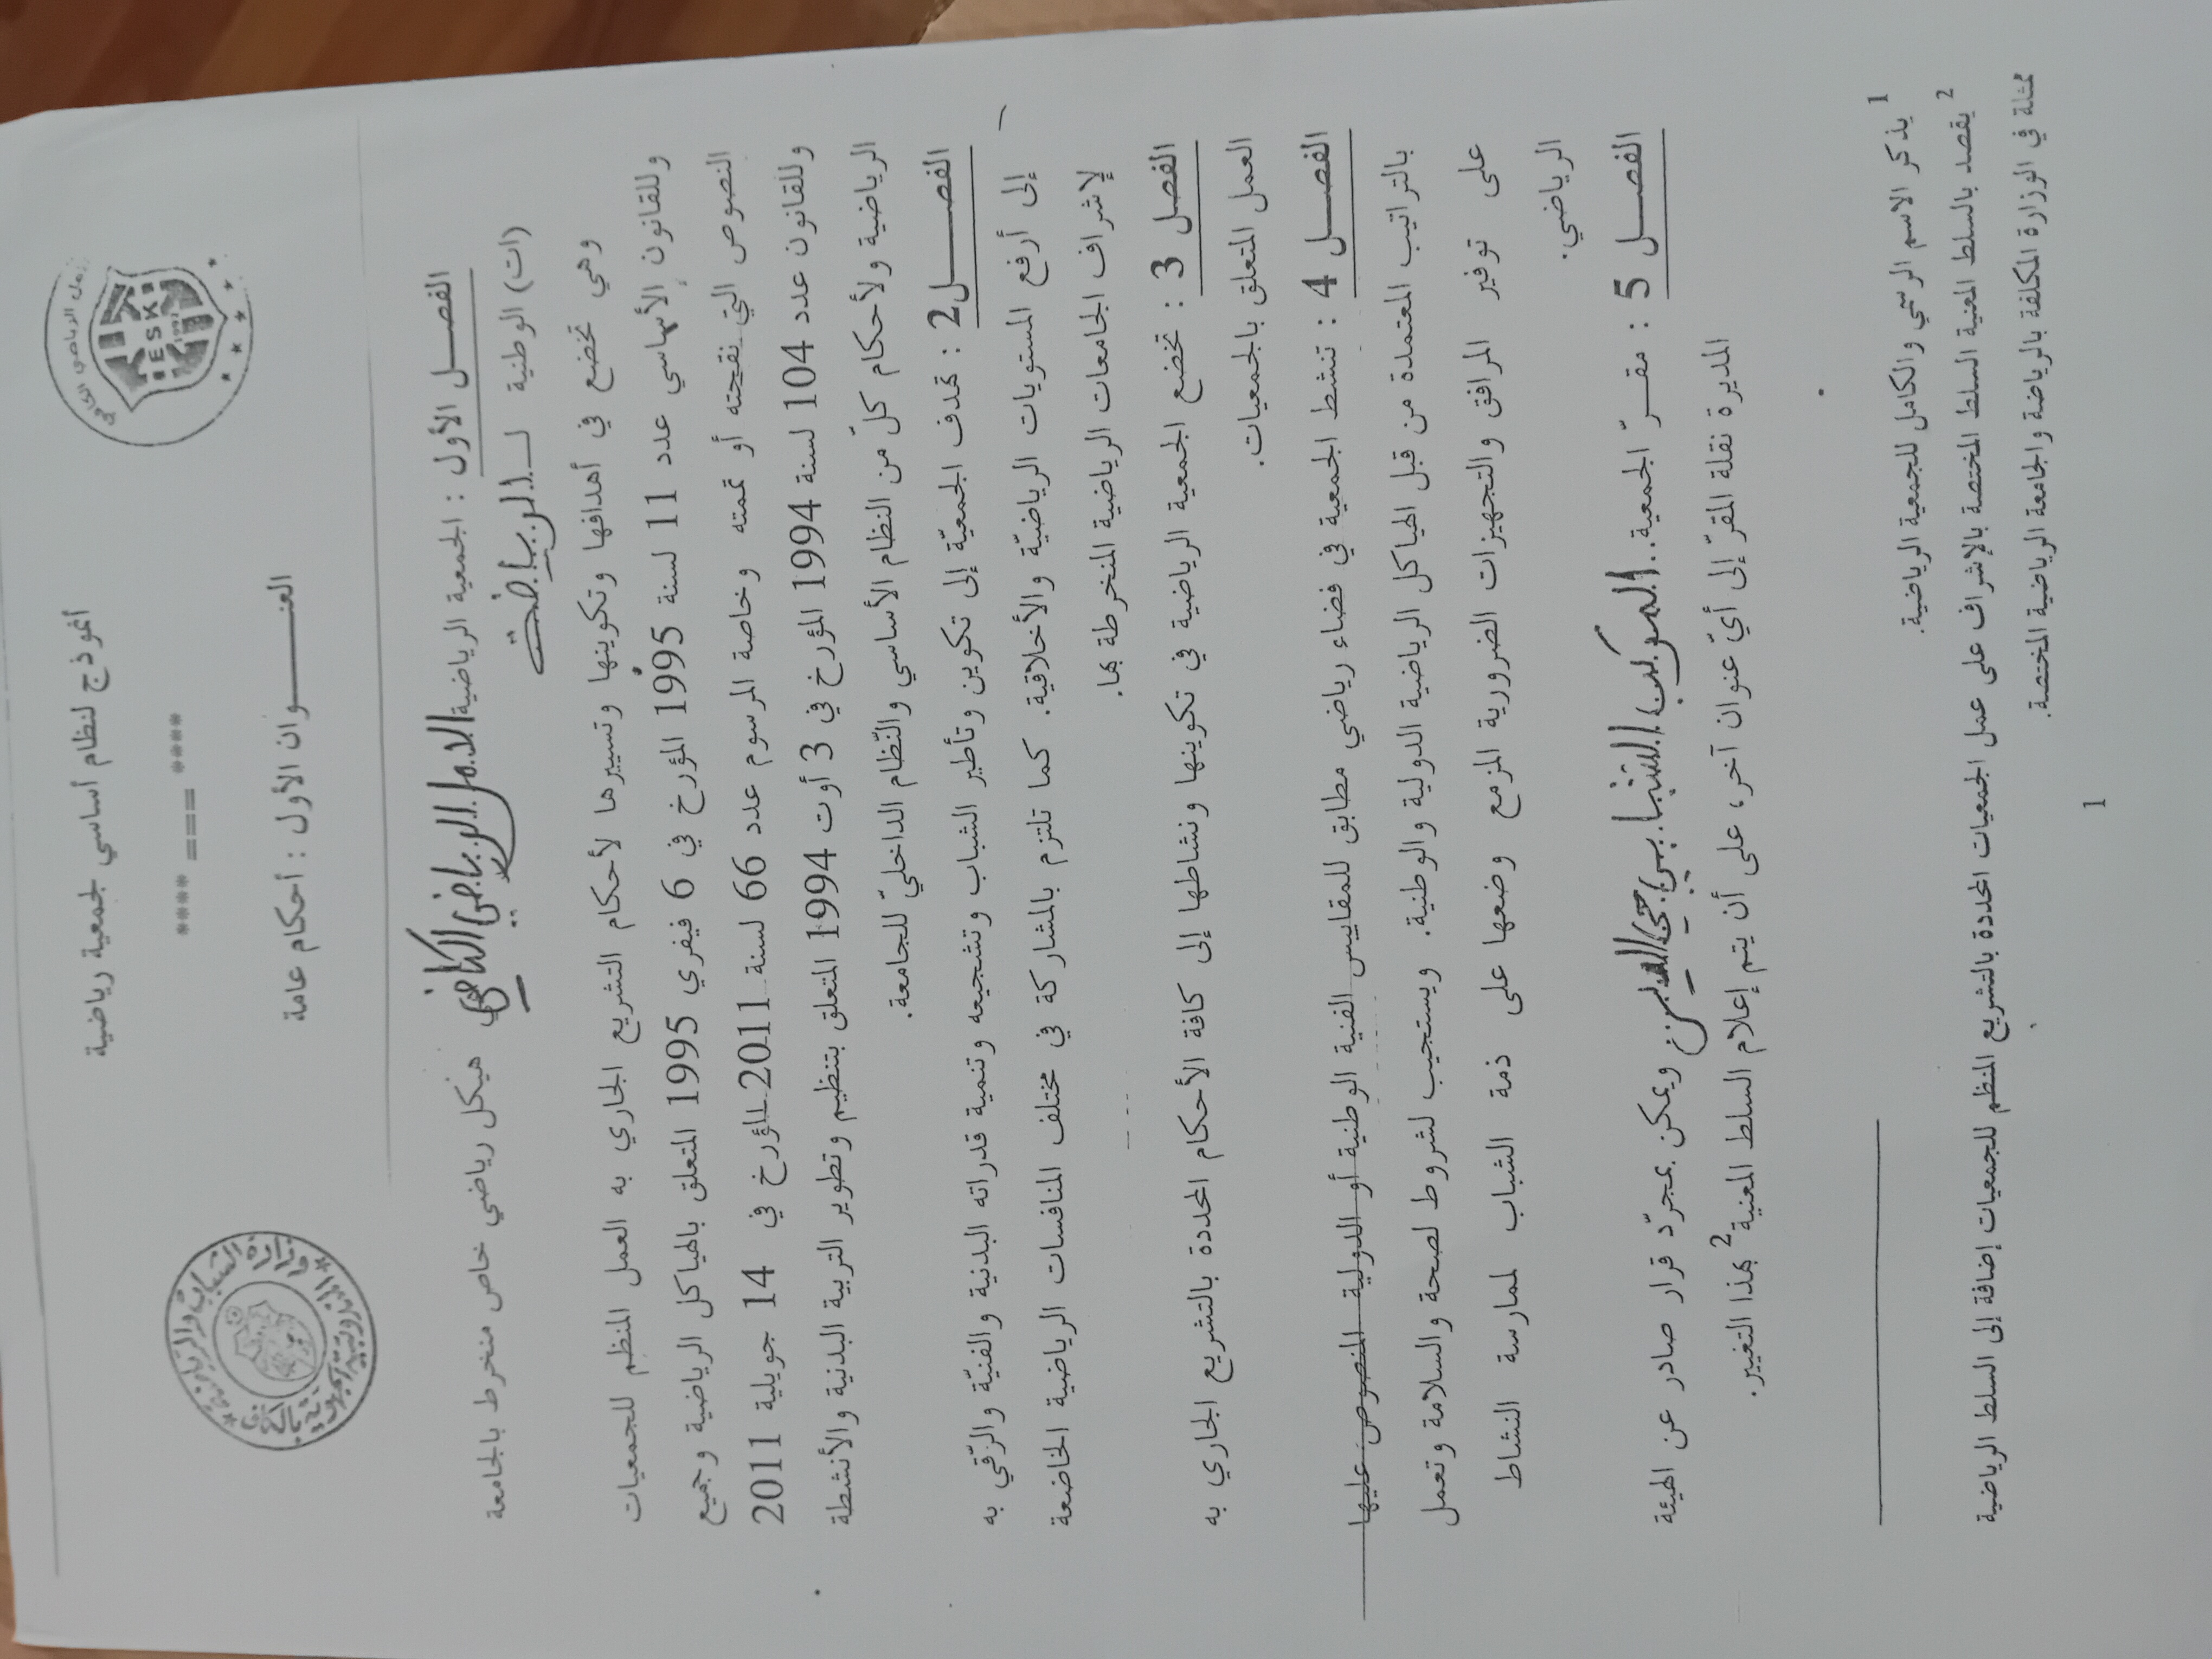 أنموذج لنظام أساسي لجمعية رياضية
**** === ****
العنــــــوان الأول : أحكام عامة
ESK
1992
الفصـــل الأول : الجمعية الرياضية الامل الرياضي هيكل رياضي خاص منخرط بالجامعة
(ات) الوطنية لـ الرياضة
وهي تخضع في أهدافها وتكوينها وتسييرها لأحكام التشريع الجاري به العمل المنظم للجمعيات
وللقانون الأساسي عدد 11 لسنة 1995 المؤرخ في 6 فيفري 1995 المتعلق بالهياكل الرياضية وجميع
النصوص التي نقحته أو تممته وخاصة المرسوم عدد 66 لسنة 2011 المؤرخ في 14 جويلية 2011
وللقانون عدد 104 لسنة 1994 المؤرخ في 3 أوت 1994 المتعلق بتنظيم وتطوير التربية البدنية والأنشطة
الرياضية ولأحكام كلّ من النظام الأساسي والنّظام الداخليّ للجامعة.
الفصـــل2 : تهدف الجمعيّة إلى تكوين وتأطير الشباب وتشجيعه وتنمية قدراته البدنية والفنيّة والرّقي به
إلى أرفع المستويات الرياضيّة والأخلاقية. كما تلتزم بالمشاركة في مختلف المنافسات الرياضية الخاضعة
لإشراف الجامعات الرياضية المنخرطة بها.
الفصل 3 : تخضع الجمعية الرياضية في تكوينها ونشاطها إلى كافة الأحكام المحددة بالتشريع الجاري به
العمل المتعلق بالجمعيات.
الفصـــل 4 : تنشط الجمعية في فضاء رياضي مطابق للمقاييس الفنية الوطنية أو الدولية المنصوص عليها
بالتراتيب المعتمدة من قبل الهياكل الرياضية الدولية والوطنية. ويستجيب لشروط لصحة والسلامة وتعمل
على توفير المرافق والتجهيزات الضرورية المزمع وضعها على ذمة الشباب لممارسة النشاط
الرياضي.
الفصـــل 5 : مقـــرّ الجمعية.. المركب الشبابي ويمكن بمجرّد قرار صادر عن الهيئة
المديرة نقلة المقرّ إلى أيّ عنوان آخر، على أن يتم إعلام السلط المعنية2 بهذا التغيير.
1 يذكر الاسم الرسمي والكامل للجمعية الرياضية.
2 يقصد بالسلط المعنية السلط المختصة بالإشراف على عمل الجمعيات المحددة بالتشريع المنظم للجمعيات إضافة إلى السلط الرياضية
ممثلة في الوزارة المكلفة بالرياضة والجامعة الرياضية المختصة.
1